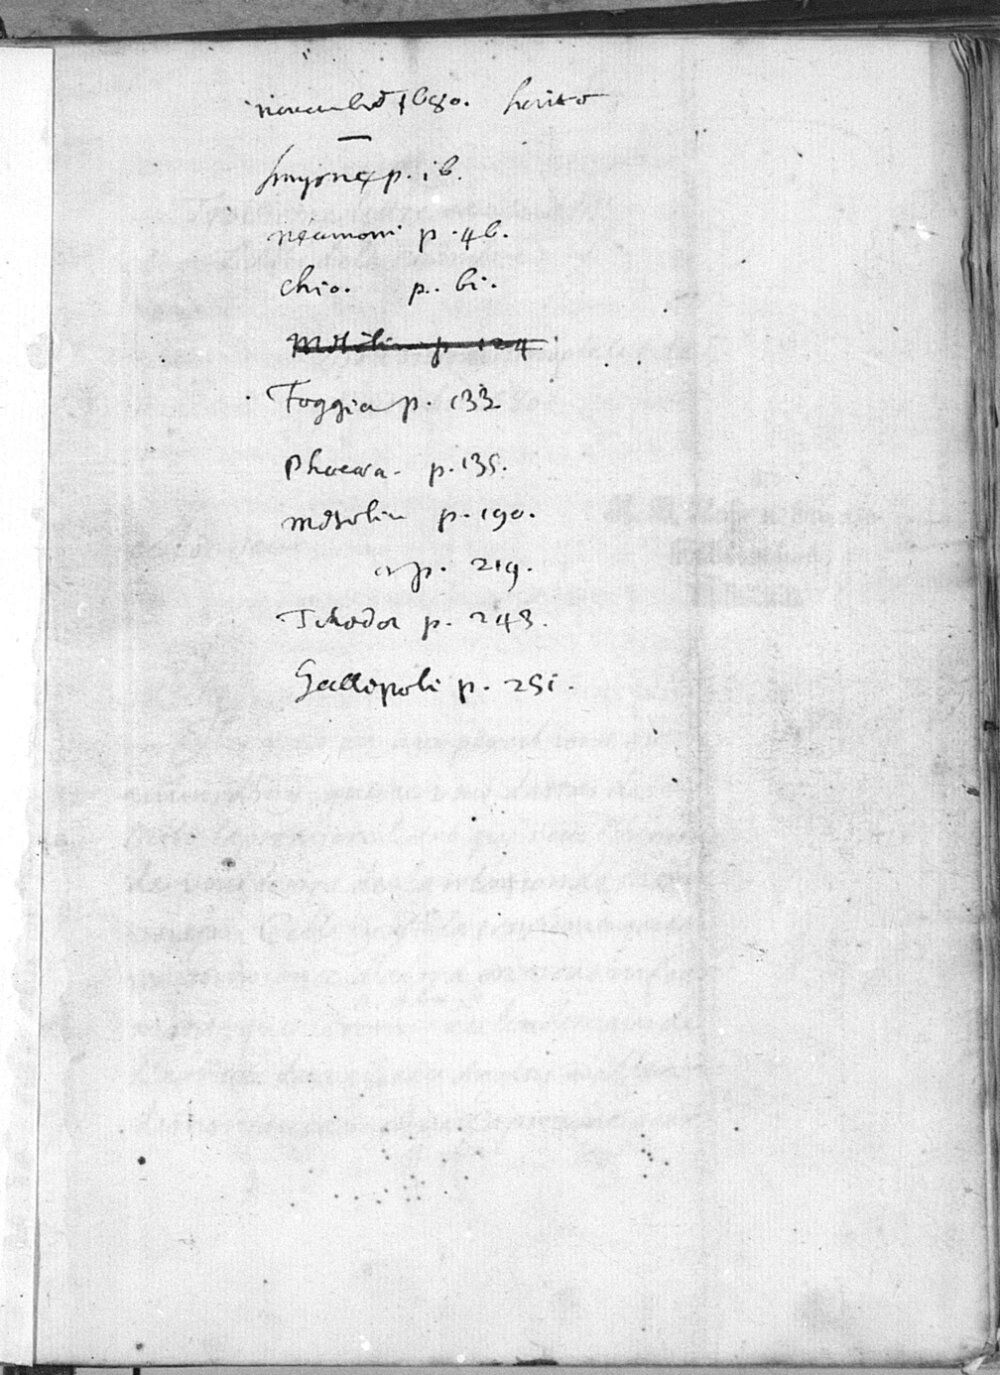 novembre 1680.
Smyrne p. 16.
neamoni p. 46.
chio. p. 61.
Metelin p. 124
Foggia p. 133
Phocaea. p. 135.
Metelin p. 190.
p. 219.
Tchador p. 248.
Gallipoli p. 251.